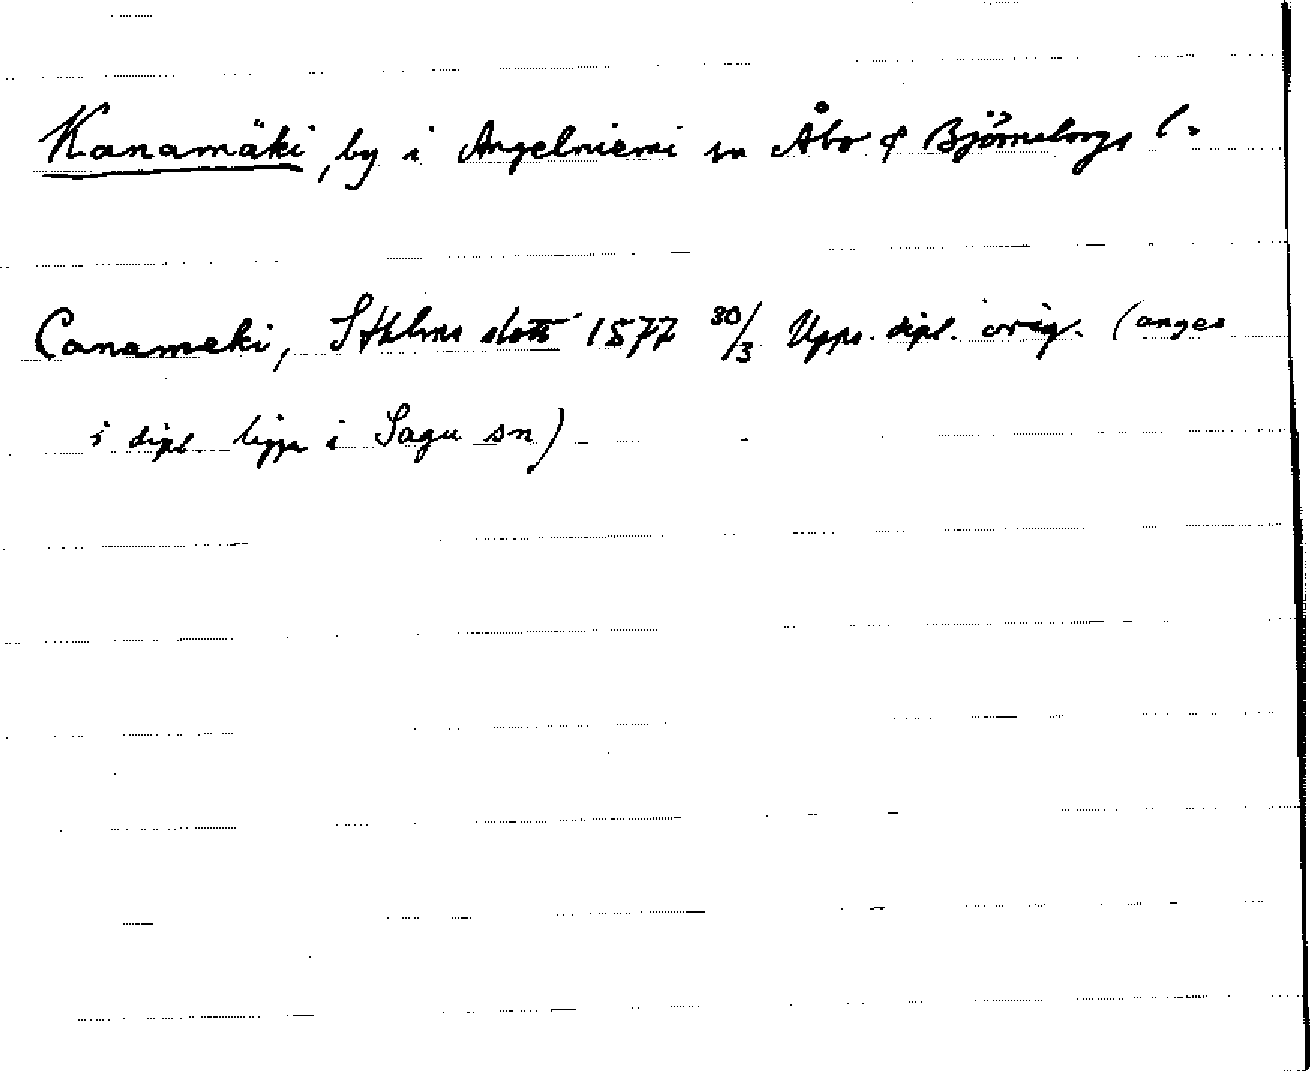 Kanamäki, by i Angelniemi sn Åbo & Björneborgs l.
Canameki, Sthlms slott 1577 30/3 Upps. dipl. orig. (anges
i dipl. ligga i Sagu sn)